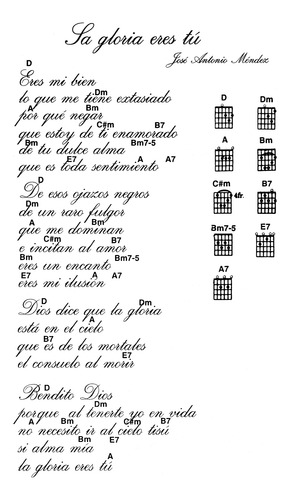 La gloria eres tú
José Antonio Méndez
D
Eres mi bien
Dm
lo que me tiene extasiado
A
por qué negar
Bm C#m B7
que estoy de ti enamorado
Bm Bm7-5
de tu dulce alma
E7 A A7
que es toda sentimiento
D
De esos ojazos negros
Dm
de un raro fulgor
A
que me dominan
C#m B7
e incitan al amor
Bm Bm7-5
eres un encanto
E7 A A7
eres mi ilusión
D Dm
Dios dice que la gloria
A
está en el cielo
B7
que es de los mortales
E7
el consuelo al morir
D
Bendito Dios
Dm
porque al tenerte yo en vida
A Bm B7
no necesito ir al cielo tisú
Bm E7
si alma mía
A
la gloria eres tú
D Dm
A Bm
C#m 4fr. B7
Bm7-5 E7
A7